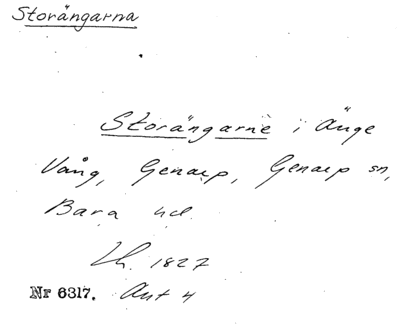 Storängarna
Storängarne i Änge
Vång, Genarp, Genarp sn,
Bara hd.
Lh. 1827
Nr 6317. Akt 4